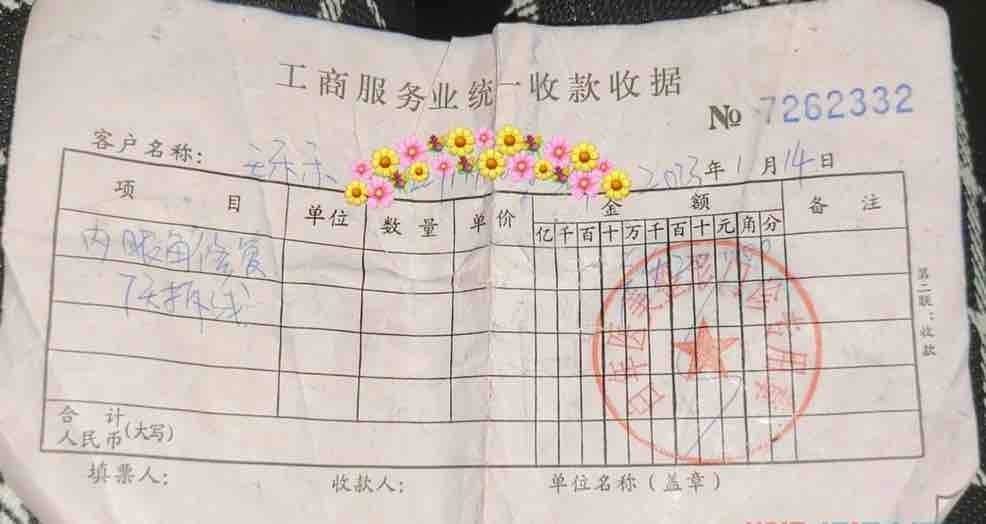 工商服务业统一收款收据
№ 7262332
客户名称: 2023年1月14日
项目 单位 数量 单价 金额 备注
亿千百十万千百十元角分
内眼角修复
7天拆线
第二联:收款
合计
人民币(大写)
填票人: 收款人: 单位名称(盖章)